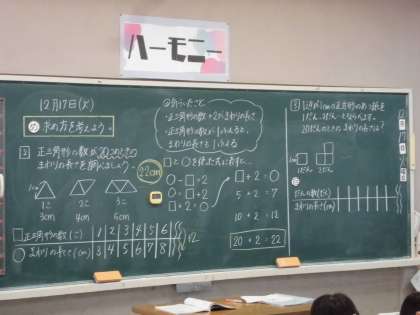 ハーモニー
12月17日(火)
め 求め方を考えよう。
2 正三角形の数が20このときの
まわりの長さを調べましょう。
22cm
1cm
1こ 2こ 3こ
3cm 4cm 5cm
□正三角形の数(こ) 1 2 3 4 5 6
○まわりの長さ(cm) 3 4 5 6 7 8
+2
気づいたこと
・正三角形の数+2がまわりの長さ
・正三角形の数が1ふえると、
まわりの長さも1ふえる
□と○を使った式に表すと…
□+2
5+2=7
10+2=12
20+2=22
3 1辺が1cmの正方形のあつ紙を
1だん、2だん…とならべます。
20だんのときのまわりの長さは?
1だん 2だん
だんの数(だん)
まわりの長さ(cm)